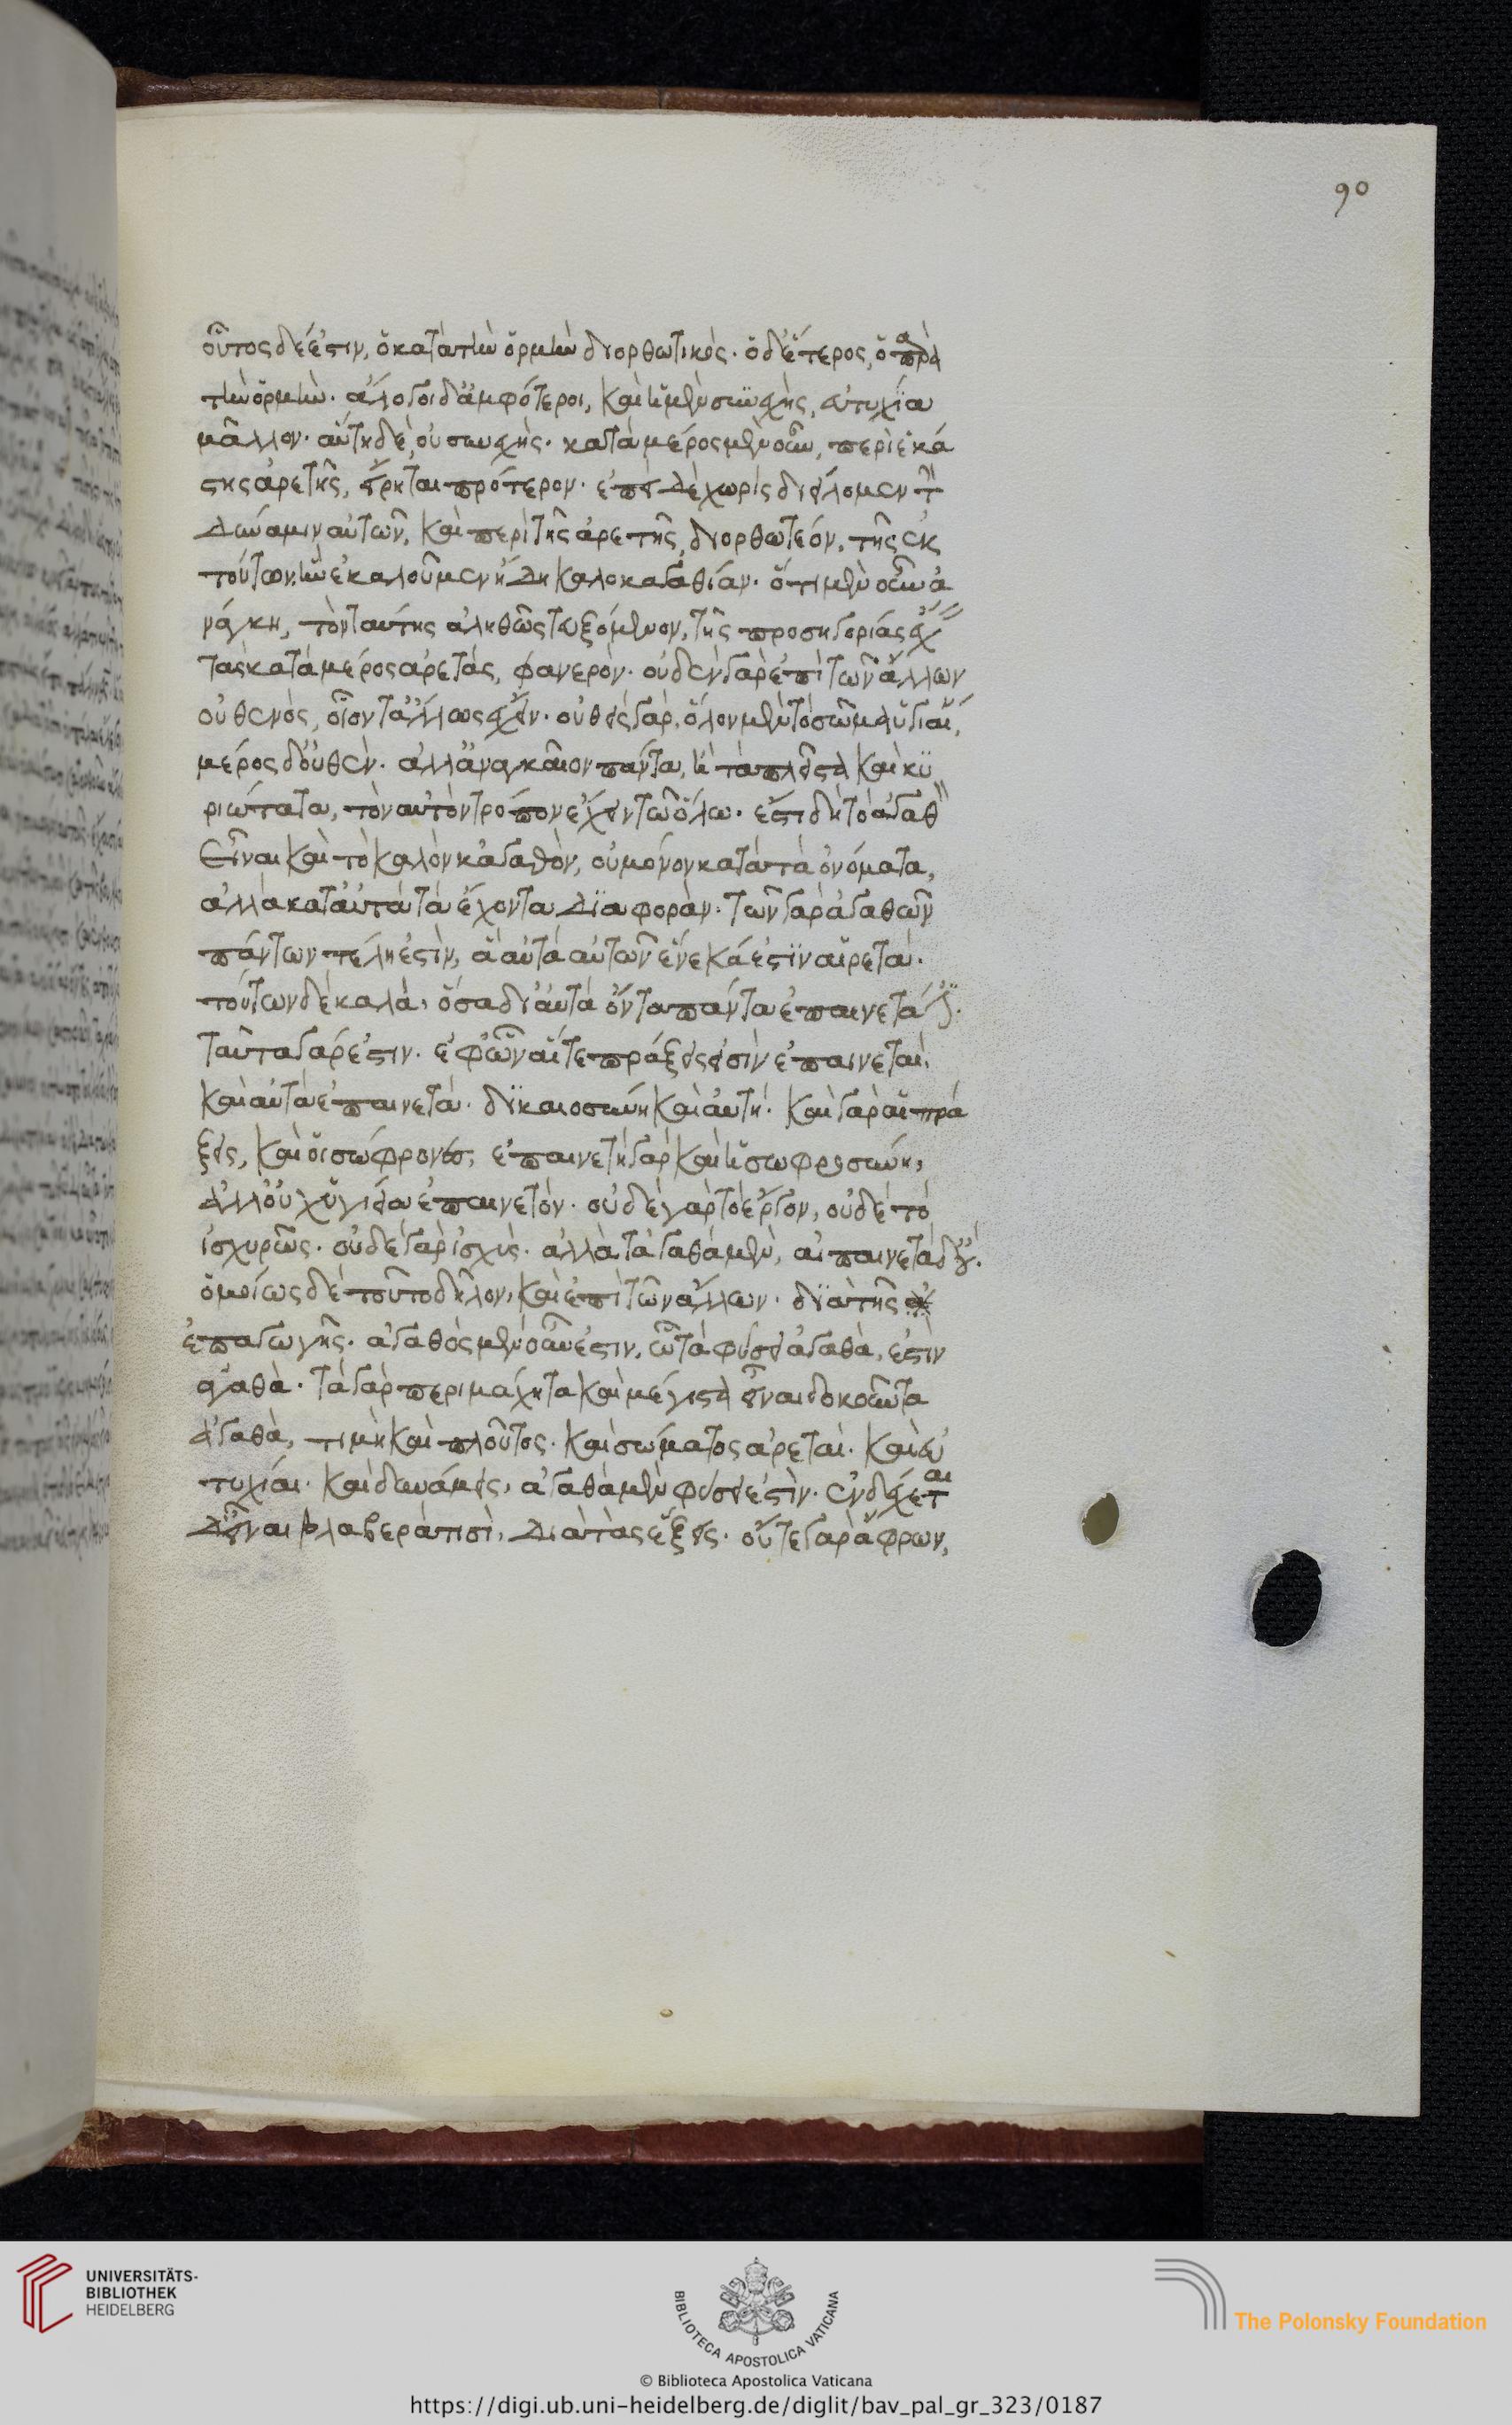 90
οὗτος δέ ἐστιν, ὁ κατὰ τὴν ὁρμὴν διορθωτικός. ὁ δ' ἕτερος, ὁ παρὰ
τὴν ὁρμήν. ἄλογοι δ' ἀμφότεροι, καὶ ἡ μὲν συνεχὴς, εὐτυχία
μᾶλλον. αὕτη δὲ, οὐ συνεχής. κατὰ μέρος μὲν οὖν, περὶ ἑκά
στης ἀρετῆς, εἴρηται πρότερον. ἐπεὶ δὲ χωρὶς διείλομεν τὴν
δύναμιν αὐτῶν, καὶ περὶ τῆς ἀρετῆς, διορθωτέον, τῆς ἐκ
τούτων, ἣν ἐκαλοῦμεν ἤδη καλοκαγαθίαν. ὅτι μὲν οὖν ἀ
νάγκη, τὸν ταύτης ἀληθῶς τευξόμενον, τῆς προσηγορίας ἔχειν
τὰς κατὰ μέρος ἀρετάς, φανερόν. οὐδὲν γὰρ ἐπὶ τῶν ἄλλων
οὐθενὸς, οἷόν τ' ἄλλως ἔχειν. οὐθεὶς γὰρ, ὅλον μὲν τὸ σῶμα ὑγιαί,
μέρος δ' οὐθέν. ἀλλ' ἀναγκαῖον πάντα, ἢ τὰ πλεῖστα καὶ κυ
ριώτατα, τὸν αὐτὸν τρόπον ἔχειν τῷ ὅλῳ. ἔστι δὴ τὸ ἀγαθὸν
εἶναι καὶ τὸ καλὸν κἀγαθὸν, οὐ μόνον κατὰ τὰ ὀνόματα,
ἀλλὰ κατ' αὐτὰ τὰ ἔχοντα διαφοράν. τῶν γὰρ ἀγαθῶν
πάντων τέλη ἐστὶν, ἃ αὐτὰ αὑτῶν ἕνεκά ἐστιν αἱρετά.
τούτων δὲ καλὰ, ὅσα δι' αὑτὰ ὄντα πάντα ἐπαινετά
ταῦτα γάρ ἐστιν. ἐφ' ὧν αἵ τε πράξεις εἰσὶν ἐπαινεταὶ,
καὶ αὐτὰ ἐπαινετά. δικαιοσύνη καὶ αὐτή. καὶ γὰρ αἱ πρά
ξεις, καὶ οἱ σώφρονες, ἐπαινετὴ γὰρ καὶ ἡ σωφροσύνη,
ἀλλ' οὐχ ὑγίεια ἐπαινετόν. οὐδὲ γὰρ τὸ ἔργον, οὐδὲ τὸ
ἰσχυρῶς. οὐδὲ γὰρ ἰσχύς. ἀλλὰ τἀγαθὰ μὲν, αἰπαινετὰ δ' οὔ.
ὁμοίως δὲ τοῦτο δῆλον, καὶ ἐπὶ τῶν ἄλλων. διὰ τῆς
ἐπαγωγῆς. ἀγαθὸς μὲν οὖν ἐστιν, ᾧ τὰ φύσει ἀγαθὰ, ἐστὶν
ἀγαθά. τὰ γὰρ περιμάχητα καὶ μέγιστα εἶναι δοκοῦντα
ἀγαθὰ, τιμὴ καὶ πλοῦτος. καὶ σώματος ἀρεταὶ. καὶ εὐ
τυχίαι. καὶ δυνάμεις, ἀγαθὰ μὲν φύσει ἐστίν. ἐνδέχεται
δ' εἶναι βλαβερά τισι, διὰ τὰς ἕξεις. οὔτε γὰρ ἄφρων,
UNIVERSITÄTS-
BIBLIOTHEK
HEIDELBERG
BIBLIOTECA APOSTOLICA VATICANA
The Polonsky Foundation
© Biblioteca Apostolica Vaticana
https://digi.ub.uni-heidelberg.de/diglit/bav_pal_gr_323/0187